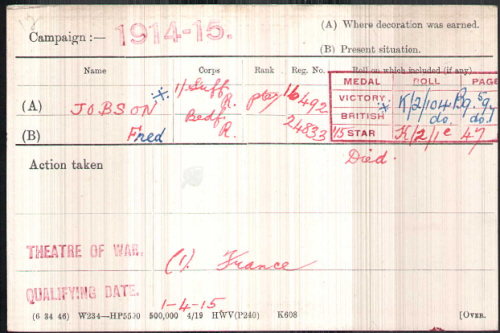 Campaign :— 1914-15.
(A) Where decoration was earned.
(B) Present situation.
Name Corps Rank Reg. No. Roll on which included (if any)
MEDAL ROLL PAGE
(A) JOBSON 1/Suff R. 16492
VICTORY K/2/104 Pg.
(B) Fred Bedf R. 24833
BRITISH do. do.
15 STAR K/2/1c 47
Action taken Died.
THEATRE OF WAR. (1). France
QUALIFYING DATE. 1-4-15
(6 34 46) W234—HP5530 500,000 4/19 HWV(P240) K608 [OVER.